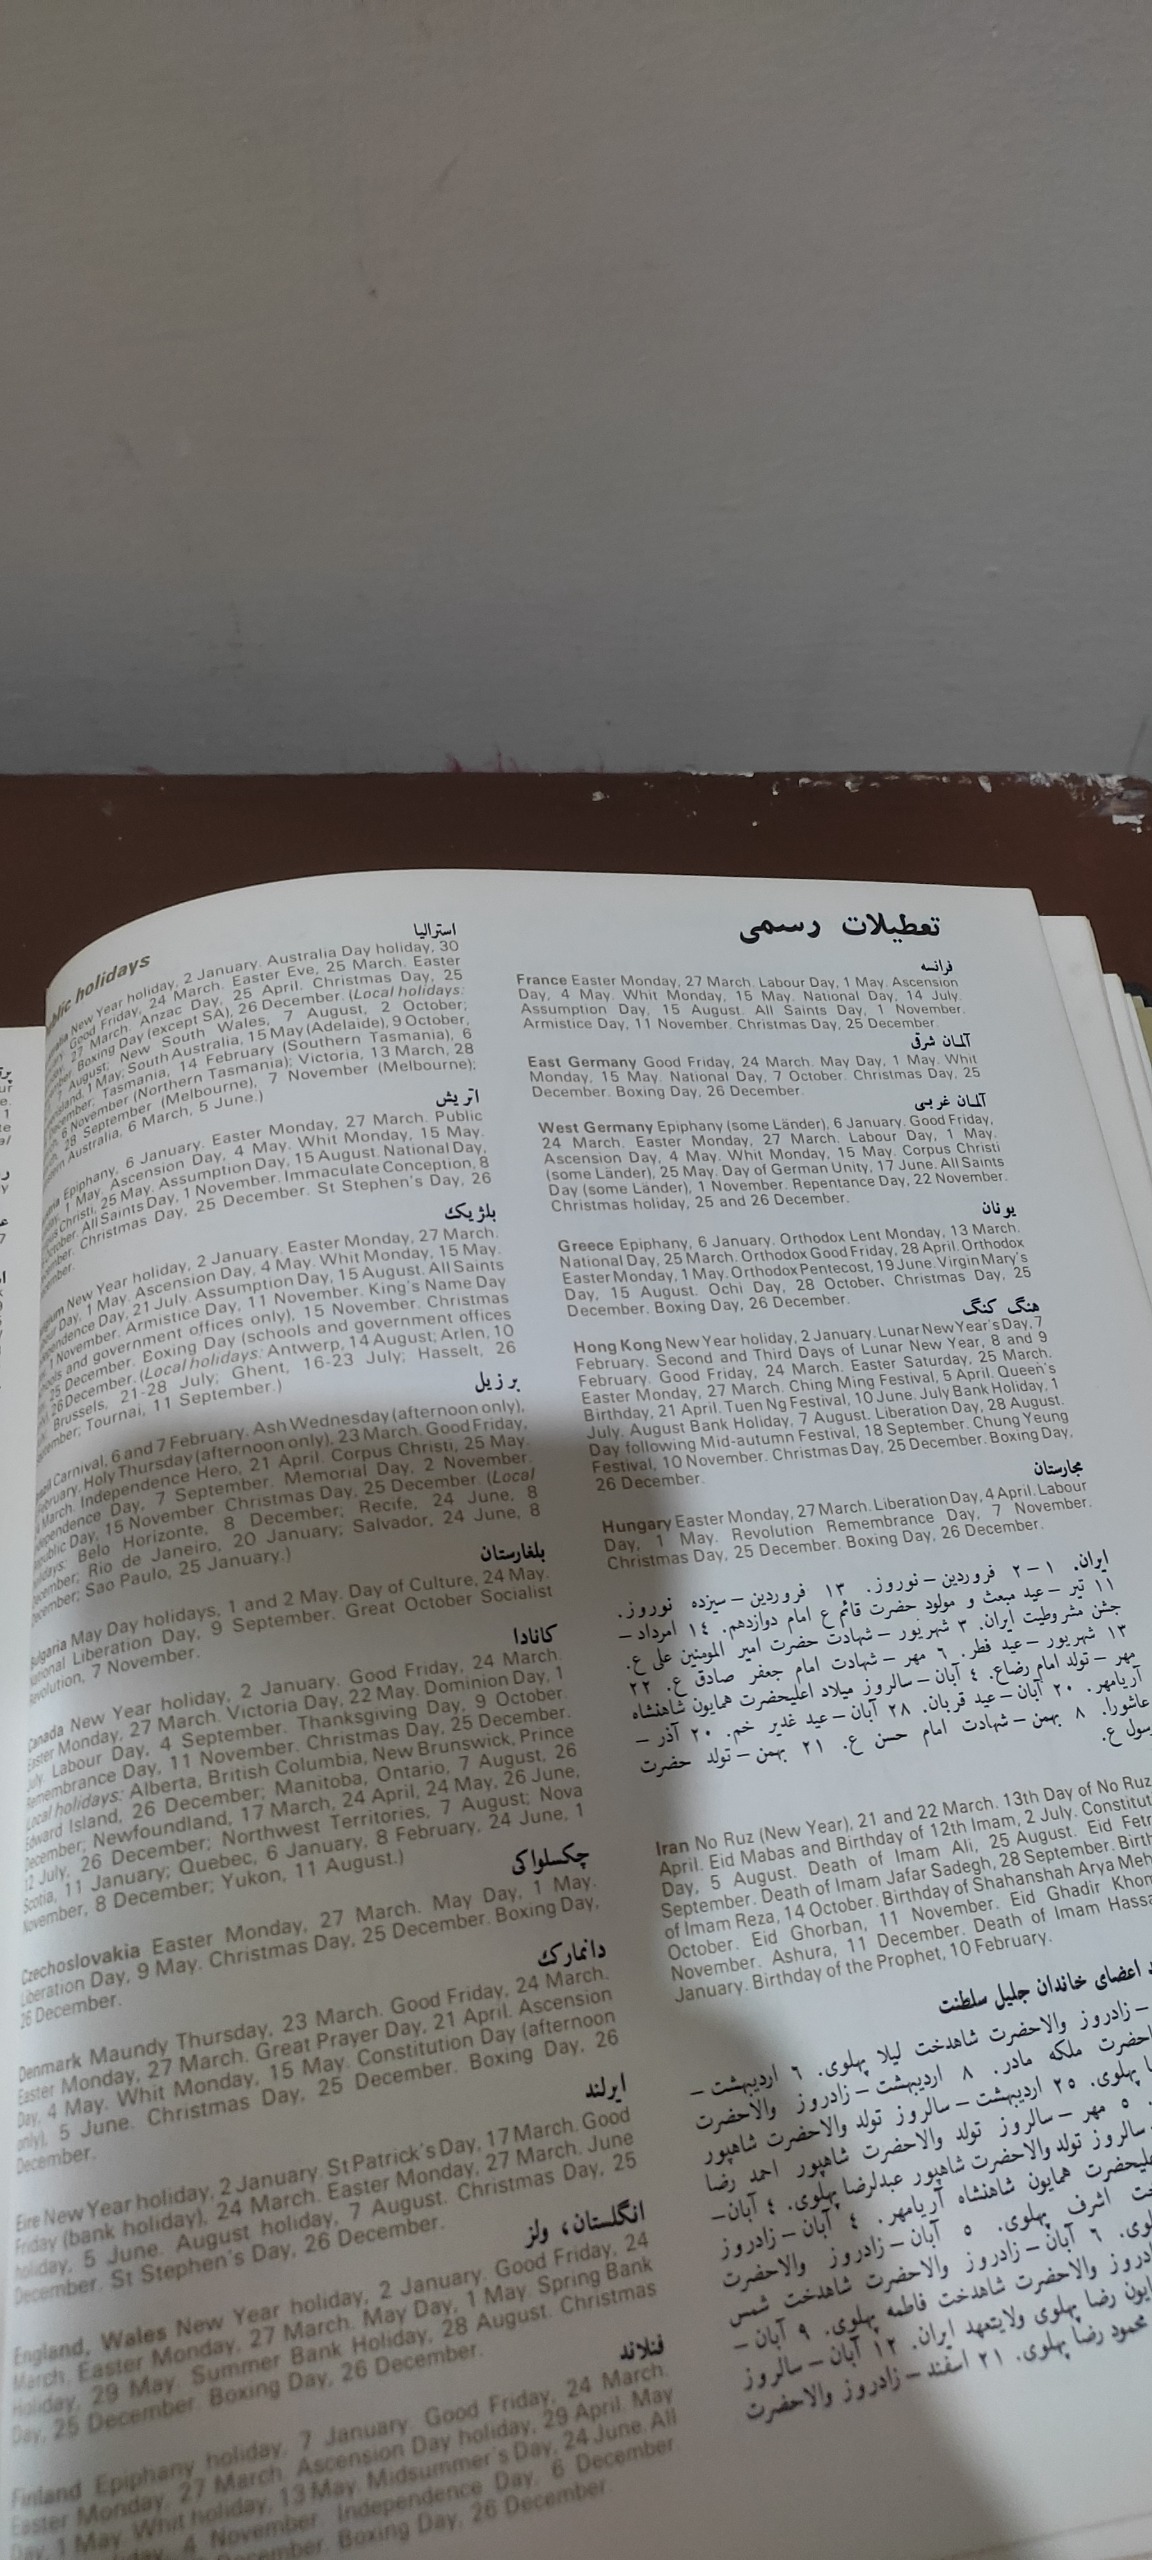 Public holidays
استرالیا
New Year holiday, 2 January. Australia Day holiday, 30
Good Friday, 24 March. Easter Eve, 25 March. Easter
27 March. Anzac Day, 25 April. Christmas Day, 25
Boxing Day (except SA), 26 December. (Local holidays:
August, New South Wales, 7 August, 2 October;
1 May; South Australia, 15 May (Adelaide), 9 October,
Tasmania, 14 February (Southern Tasmania), 6
6 November (Northern Tasmania); Victoria, 13 March, 28
28 September (Melbourne), 7 November (Melbourne);
Australia, 6 March, 5 June.)
اتریش
Epiphany, 6 January. Easter Monday, 27 March. Public
1 May. Ascension Day, 4 May. Whit Monday, 15 May.
Christi, 25 May. Assumption Day, 15 August. National Day,
October. All Saints Day, 1 November. Immaculate Conception, 8
Christmas Day, 25 December. St Stephen's Day, 26
بلژیک
New Year holiday, 2 January. Easter Monday, 27 March.
Day, 1 May. Ascension Day, 4 May. Whit Monday, 15 May.
Day, 21 July. Assumption Day, 15 August. All Saints
1 November. Armistice Day, 11 November. King's Name Day
and government offices only), 15 November. Christmas
25 December. Boxing Day (schools and government offices
26 December. (Local holidays: Antwerp, 14 August; Arlen, 10
Brussels, 21-28 July; Ghent, 16-23 July; Hasselt, 26
Tournai, 11 September.)
برزیل
Carnival, 6 and 7 February. Ash Wednesday (afternoon only),
February. Holy Thursday (afternoon only), 23 March. Good Friday,
March. Independence Hero, 21 April. Corpus Christi, 25 May.
Independence Day, 7 September. Memorial Day, 2 November.
Republic Day, 15 November Christmas Day, 25 December. (Local
holidays: Belo Horizonte, 8 December; Recife, 24 June, 8
December; Rio de Janeiro, 20 January; Salvador, 24 June, 8
December; Sao Paulo, 25 January.)
بلغارستان
Bulgaria May Day holidays, 1 and 2 May. Day of Culture, 24 May.
National Liberation Day, 9 September. Great October Socialist
Revolution, 7 November.
کانادا
Canada New Year holiday, 2 January. Good Friday, 24 March.
Easter Monday, 27 March. Victoria Day, 22 May. Dominion Day, 1
July. Labour Day, 4 September. Thanksgiving Day, 9 October.
Remembrance Day, 11 November. Christmas Day, 25 December.
Local holidays: Alberta, British Columbia, New Brunswick, Prince
Edward Island, 26 December; Manitoba, Ontario, 7 August, 26
December; Newfoundland, 17 March, 24 April, 24 May, 26 June,
12 July, 26 December; Northwest Territories, 7 August; Nova
Scotia, 11 January; Quebec, 6 January, 8 February, 24 June, 1
November, 8 December; Yukon, 11 August.)
چکسلواکی
Czechoslovakia Easter Monday, 27 March. May Day, 1 May.
Liberation Day, 9 May. Christmas Day, 25 December. Boxing Day,
26 December.
دانمارک
Denmark Maundy Thursday, 23 March. Good Friday, 24 March.
Easter Monday, 27 March. Great Prayer Day, 21 April. Ascension
Day, 4 May. Whit Monday, 15 May. Constitution Day (afternoon
only), 5 June. Christmas Day, 25 December. Boxing Day, 26
December.
ایرلند
Eire New Year holiday, 2 January. St Patrick's Day, 17 March. Good
Friday (bank holiday), 24 March. Easter Monday, 27 March. June
holiday, 5 June. August holiday, 7 August. Christmas Day, 25
December. St Stephen's Day, 26 December.
انگلستان، ولز
England, Wales New Year holiday, 2 January. Good Friday, 24
March. Easter Monday, 27 March. May Day, 1 May. Spring Bank
Holiday, 29 May. Summer Bank Holiday, 28 August. Christmas
Day, 25 December. Boxing Day, 26 December.
فنلاند
Finland Epiphany holiday, 7 January. Good Friday, 24 March.
Easter Monday, 27 March. Ascension Day holiday, 29 April. May
Day, 1 May. Whit holiday, 13 May. Midsummer's Day, 24 June. All
4 November. Independence Day, 6 December.
Boxing Day, 26 December.
تعطیلات رسمی
فرانسه
France Easter Monday, 27 March. Labour Day, 1 May. Ascension
Day, 4 May. Whit Monday, 15 May. National Day, 14 July.
Assumption Day, 15 August. All Saints Day, 1 November.
Armistice Day, 11 November. Christmas Day, 25 December.
آلمان شرقی
East Germany Good Friday, 24 March. May Day, 1 May. Whit
Monday, 15 May. National Day, 7 October. Christmas Day, 25
December. Boxing Day, 26 December.
آلمان غربی
West Germany Epiphany (some Länder), 6 January. Good Friday,
24 March. Easter Monday, 27 March. Labour Day, 1 May.
Ascension Day, 4 May. Whit Monday, 15 May. Corpus Christi
(some Länder), 25 May. Day of German Unity, 17 June. All Saints
Day (some Länder), 1 November. Repentance Day, 22 November.
Christmas holiday, 25 and 26 December.
یونان
Greece Epiphany, 6 January. Orthodox Lent Monday, 13 March.
National Day, 25 March. Orthodox Good Friday, 28 April. Orthodox
Easter Monday, 1 May. Orthodox Pentecost, 19 June. Virgin Mary's
Day, 15 August. Ochi Day, 28 October. Christmas Day, 25
December. Boxing Day, 26 December.
هنگ کنگ
Hong Kong New Year holiday, 2 January. Lunar New Year's Day, 7
February. Second and Third Days of Lunar New Year, 8 and 9
February. Good Friday, 24 March. Easter Saturday, 25 March.
Easter Monday, 27 March. Ching Ming Festival, 5 April. Queen's
Birthday, 21 April. Tuen Ng Festival, 10 June. July Bank Holiday, 1
July. August Bank Holiday, 7 August. Liberation Day, 28 August.
Day following Mid-autumn Festival, 18 September. Chung Yeung
Festival, 10 November. Christmas Day, 25 December. Boxing Day,
26 December.
مجارستان
Hungary Easter Monday, 27 March. Liberation Day, 4 April. Labour
Day, 1 May. Revolution Remembrance Day, 7 November.
Christmas Day, 25 December. Boxing Day, 26 December.
ایران. ۱–۲ فروردین – نوروز. ۱۳ فروردین – سیزده نوروز.
۱۱ تیر – عید مبعث و مولود حضرت قائم ع امام دوازدهم. ۱٤ امرداد –
جشن مشروطیت ایران. ۳ شهریور – شهادت حضرت امیر المومنین علی ع.
۱۳ شهریور – عید فطر. ٦ مهر – شهادت امام جعفر صادق ع. ۲۲
مهر – تولد امام رضاع. ٤ آبان – سالروز میلاد اعلیحضرت همایون شاهنشاه
آریامهر. ۲۰ آبان – عید قربان. ۲۸ آبان – عید غدیر خم. ۲۰ آذر –
عاشورا. ۸ بهمن – شهادت امام حسن ع. ۲۱ بهمن – تولد حضرت
رسول ع.
Iran No Ruz (New Year), 21 and 22 March. 13th Day of No Ruz
April. Eid Mabas and Birthday of 12th Imam, 2 July. Constitut
Day, 5 August. Death of Imam Ali, 25 August. Eid Fetr
September. Death of Imam Jafar Sadegh, 28 September. Birth
of Imam Reza, 14 October. Birthday of Shahanshah Arya Meh
October. Eid Ghorban, 11 November. Eid Ghadir Khom
November. Ashura, 11 December. Death of Imam Hassa
January. Birthday of the Prophet, 10 February.
اعضای خاندان جلیل سلطنت
– زادروز والاحضرت شاهدخت لیلا پهلوی. ٦ اردیبهشت –
ملکه مادر. ۸ اردیبهشت – زادروز والاحضرت
پهلوی. ۲۵ اردیبهشت – سالروز تولد والاحضرت شاهپور
۵ مهر – سالروز تولد والاحضرت شاهپور احمد رضا
سالروز تولد والاحضرت شاهپور عبدلرضا پهلوی. ٤ آبان –
همایون شاهنشاه آریامهر. ٤ آبان – زادروز
اشرف پهلوی. ۵ آبان – زادروز والاحضرت
٦ آبان – زادروز والاحضرت شاهدخت شمس
والاحضرت شاهدخت فاطمه پهلوی. ۹ آبان –
رضا پهلوی ولایتعهد ایران. ۱۲ آبان – سالروز
محمود رضا پهلوی. ۲۱ اسفند – زادروز والاحضرت